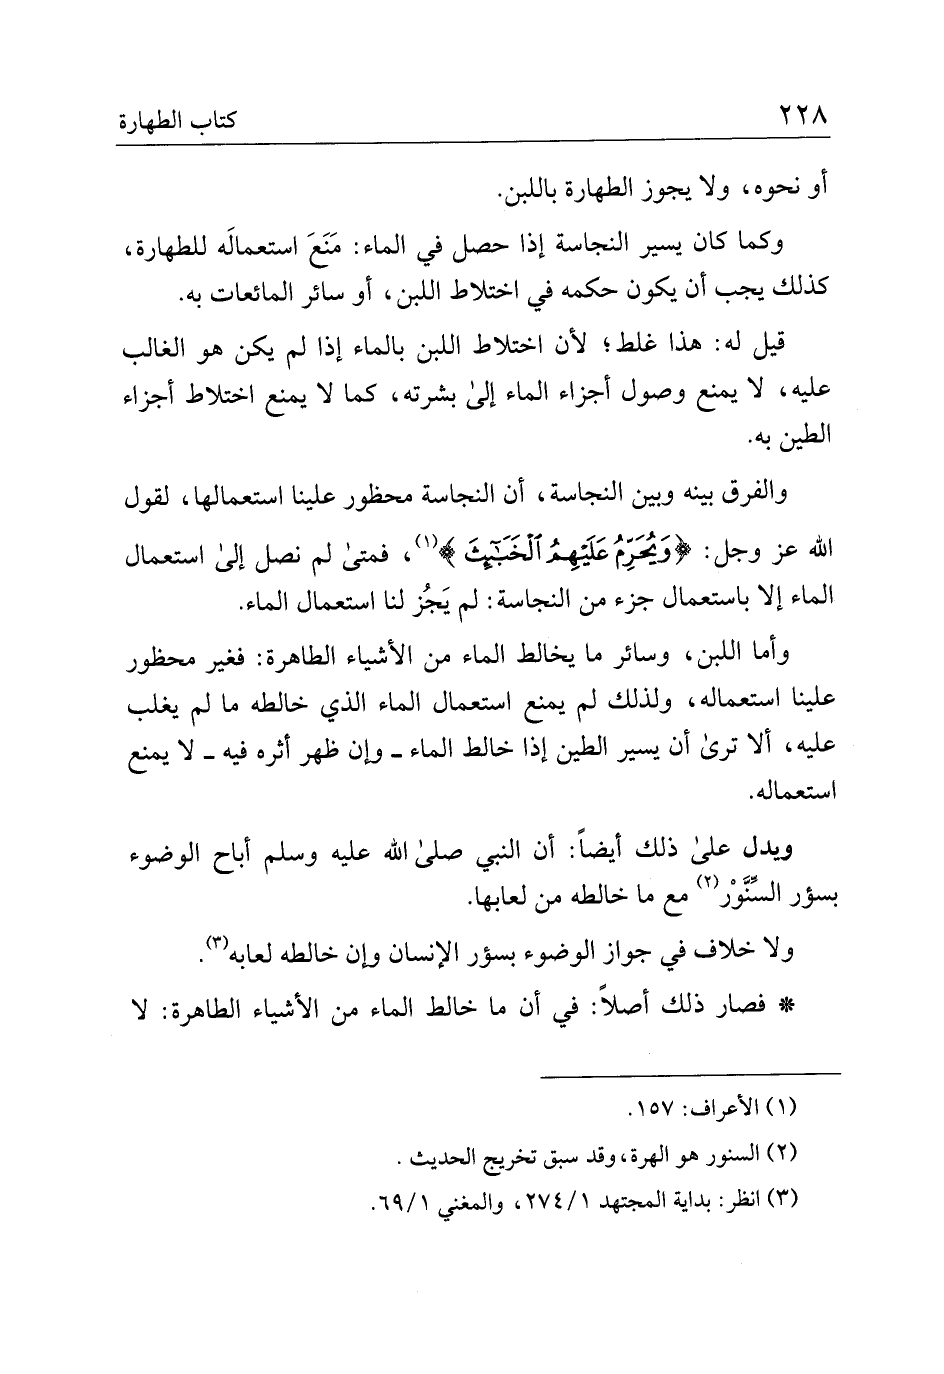 ٢٢٨ كتاب الطهارة
أو نحوه، ولا يجوز الطهارة باللبن.
وكما كان يسير النجاسة إذا حصل في الماء: مَنَعَ استعمالَه للطهارة،
كذلك يجب أن يكون حكمه في اختلاط اللبن، أو سائر المائعات به.
قيل له: هذا غلط؛ لأن اختلاط اللبن بالماء إذا لم يكن هو الغالب
عليه، لا يمنع وصول أجزاء الماء إلىٰ بشرته، كما لا يمنع اختلاط أجزاء
الطين به.
والفرق بينه وبين النجاسة، أن النجاسة محظور علينا استعمالها، لقول
الله عز وجل: ﴿وَيُحَرِّمُ عَلَيْهِمُ ٱلْخَبَٰٓئِثَ﴾(١)، فمتىٰ لم نصل إلىٰ استعمال
الماء إلا باستعمال جزء من النجاسة: لم يَجُز لنا استعمال الماء.
وأما اللبن، وسائر ما يخالط الماء من الأشياء الطاهرة: فغير محظور
علينا استعماله، ولذلك لم يمنع استعمال الماء الذي خالطه ما لم يغلب
عليه، ألا ترىٰ أن يسير الطين إذا خالط الماء ـ وإن ظهر أثره فيه ـ لا يمنع
استعماله.
ويدل علىٰ ذلك أيضاً: أن النبي صلىٰ الله عليه وسلم أباح الوضوء
بسؤر السِّنَّوْر(٢) مع ما خالطه من لعابها.
ولا خلاف في جواز الوضوء بسؤر الإنسان وإن خالطه لعابه(٣).
* فصار ذلك أصلاً: في أن ما خالط الماء من الأشياء الطاهرة: لا
(١) الأعراف: ١٥٧.
(٢) السنور هو الهرة، وقد سبق تخريج الحديث .
(٣) انظر: بداية المجتهد ٢٧٤/١، والمغني ٦٩/١.